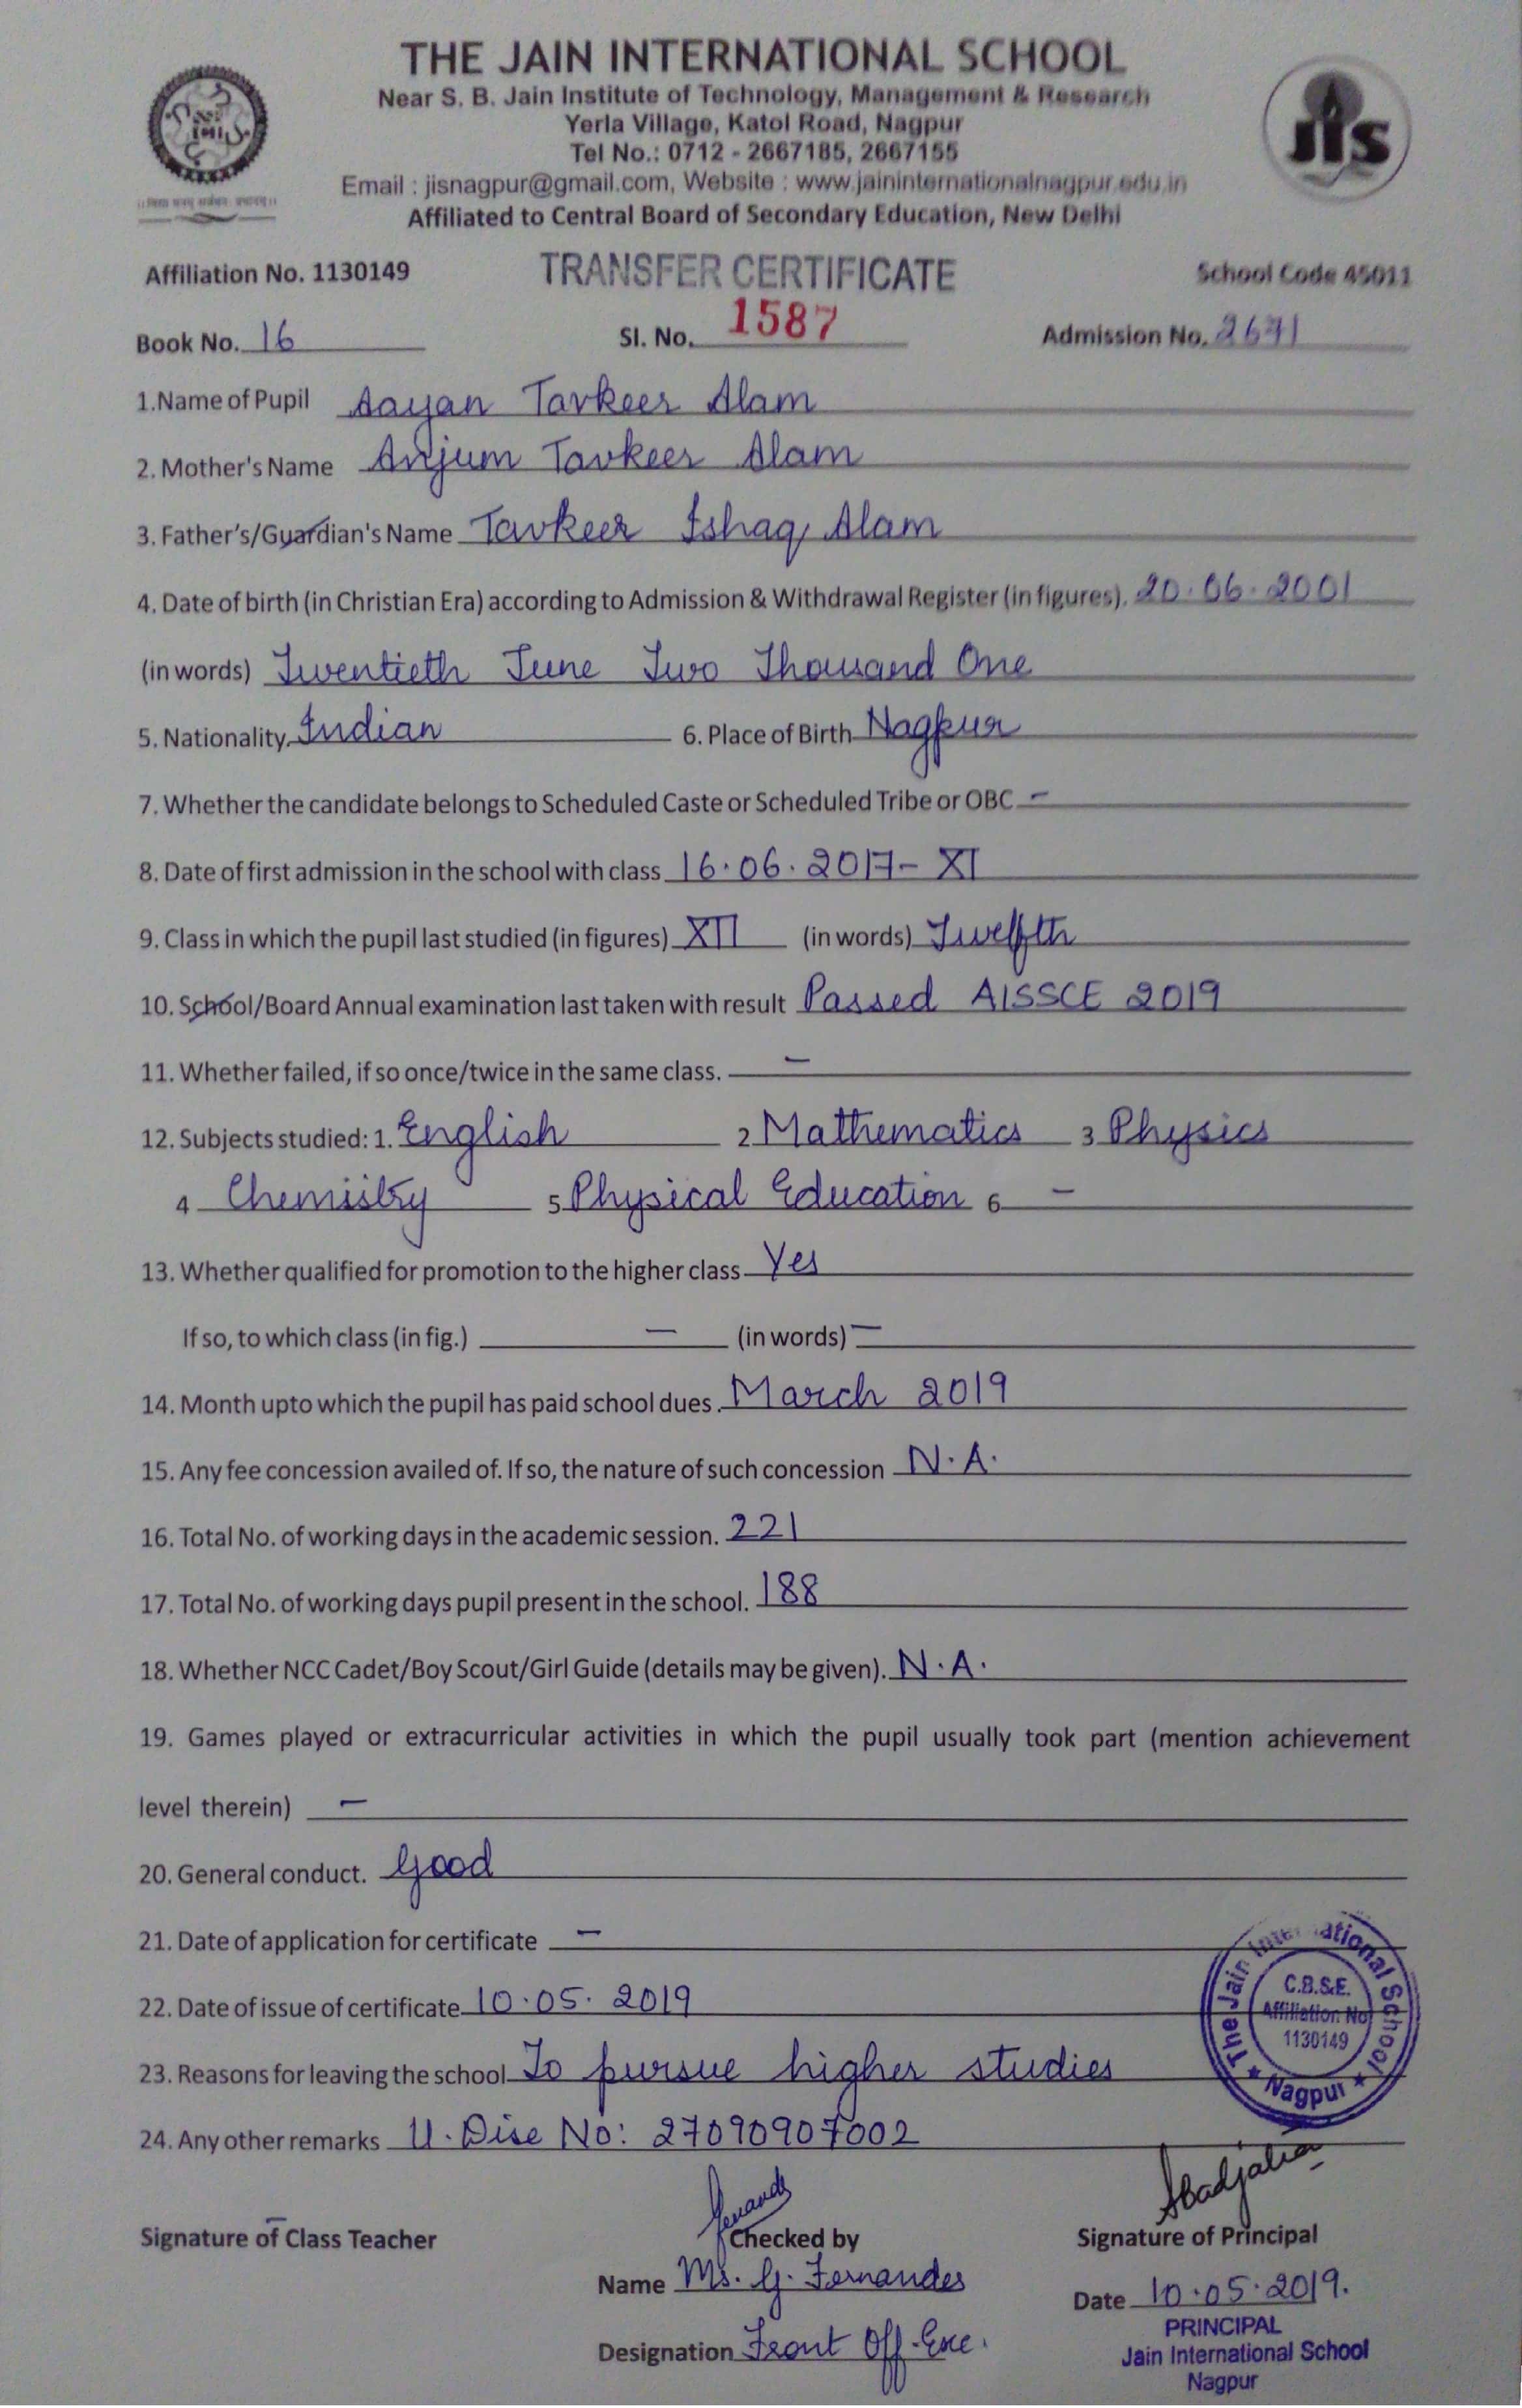 THE JAIN INTERNATIONAL SCHOOL
Near S. B. Jain Institute of Technology, Management & Research
Yerla Village, Katol Road, Nagpur
Tel No.: 0712 - 2667185, 2667155
Email : jisnagpur@gmail.com, Website : www.jaininternationalnagpur.edu.in
Affiliated to Central Board of Secondary Education, New Delhi
jis
Affiliation No. 1130149 TRANSFER CERTIFICATE School Code 45011
Book No. 16 Sl. No. 1587 Admission No. 2671
1.Name of Pupil Aayan Tavkeer Alam
2. Mother's Name Anjum Tavkeer Alam
3. Father's/Guardian's Name Tavkeer Ishaq Alam
4. Date of birth (in Christian Era) according to Admission & Withdrawal Register (in figures). 20.06.2001
(in words) Twentieth June Two Thousand One
5. Nationality Indian 6. Place of Birth Nagpur
7. Whether the candidate belongs to Scheduled Caste or Scheduled Tribe or OBC -
8. Date of first admission in the school with class 16.06.2017- XI
9. Class in which the pupil last studied (in figures) XII (in words) Twelfth
10. School/Board Annual examination last taken with result Passed AISSCE 2019
11. Whether failed, if so once/twice in the same class. -
12. Subjects studied: 1. English 2 Mathematics 3 Physics
4 Chemistry 5 Physical Education 6 -
13. Whether qualified for promotion to the higher class Yes
If so, to which class (in fig.) - (in words) -
14. Month upto which the pupil has paid school dues. March 2019
15. Any fee concession availed of. If so, the nature of such concession N.A.
16. Total No. of working days in the academic session. 221
17. Total No. of working days pupil present in the school. 188
18. Whether NCC Cadet/Boy Scout/Girl Guide (details may be given). N.A.
19. Games played or extracurricular activities in which the pupil usually took part (mention achievement
level therein) -
20. General conduct. Good
21. Date of application for certificate -
22. Date of issue of certificate 10.05.2019
23. Reasons for leaving the school To pursue higher studies
24. Any other remarks U.Dise No: 27090907002
The Jain International School
C.B.S.E.
Affiliation No
1130149
★ Nagpur ★
Signature of Class Teacher Checked by Signature of Principal
Name Ms. G. Fernandes
Date 10.05.2019.
Designation Front Off.Exe.
PRINCIPAL
Jain International School
Nagpur